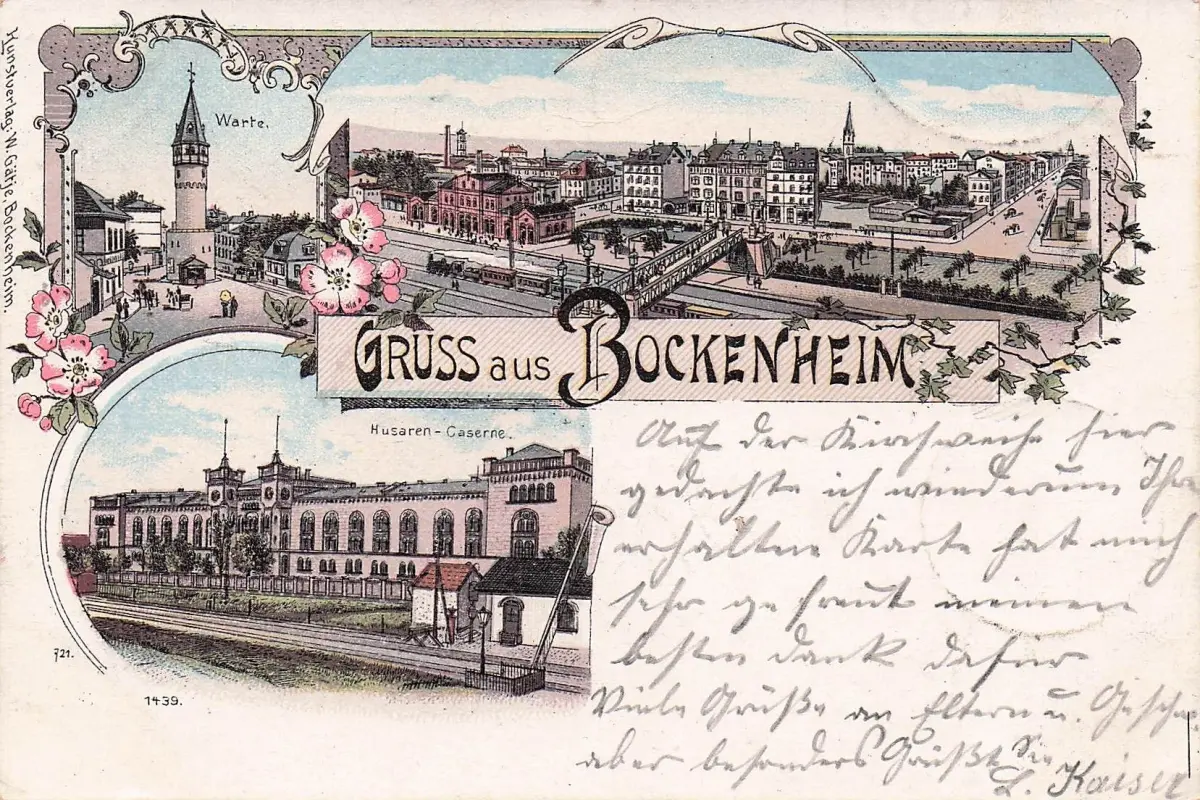 Kunstverlag: W. Gätje, Bockenheim.
Warte.
GRUSS aus BOCKENHEIM
Husaren-Caserne.
721.
1439.
Auf der Kirchweih hier
gedachte ich wiederum Ihre
erhaltene Karte hat mich
sehr gefreut meinen
besten Dank dafür
Viele Grüße an Eltern u. Geschw.
aber besonders Grüßt Sie
L. Kaiser